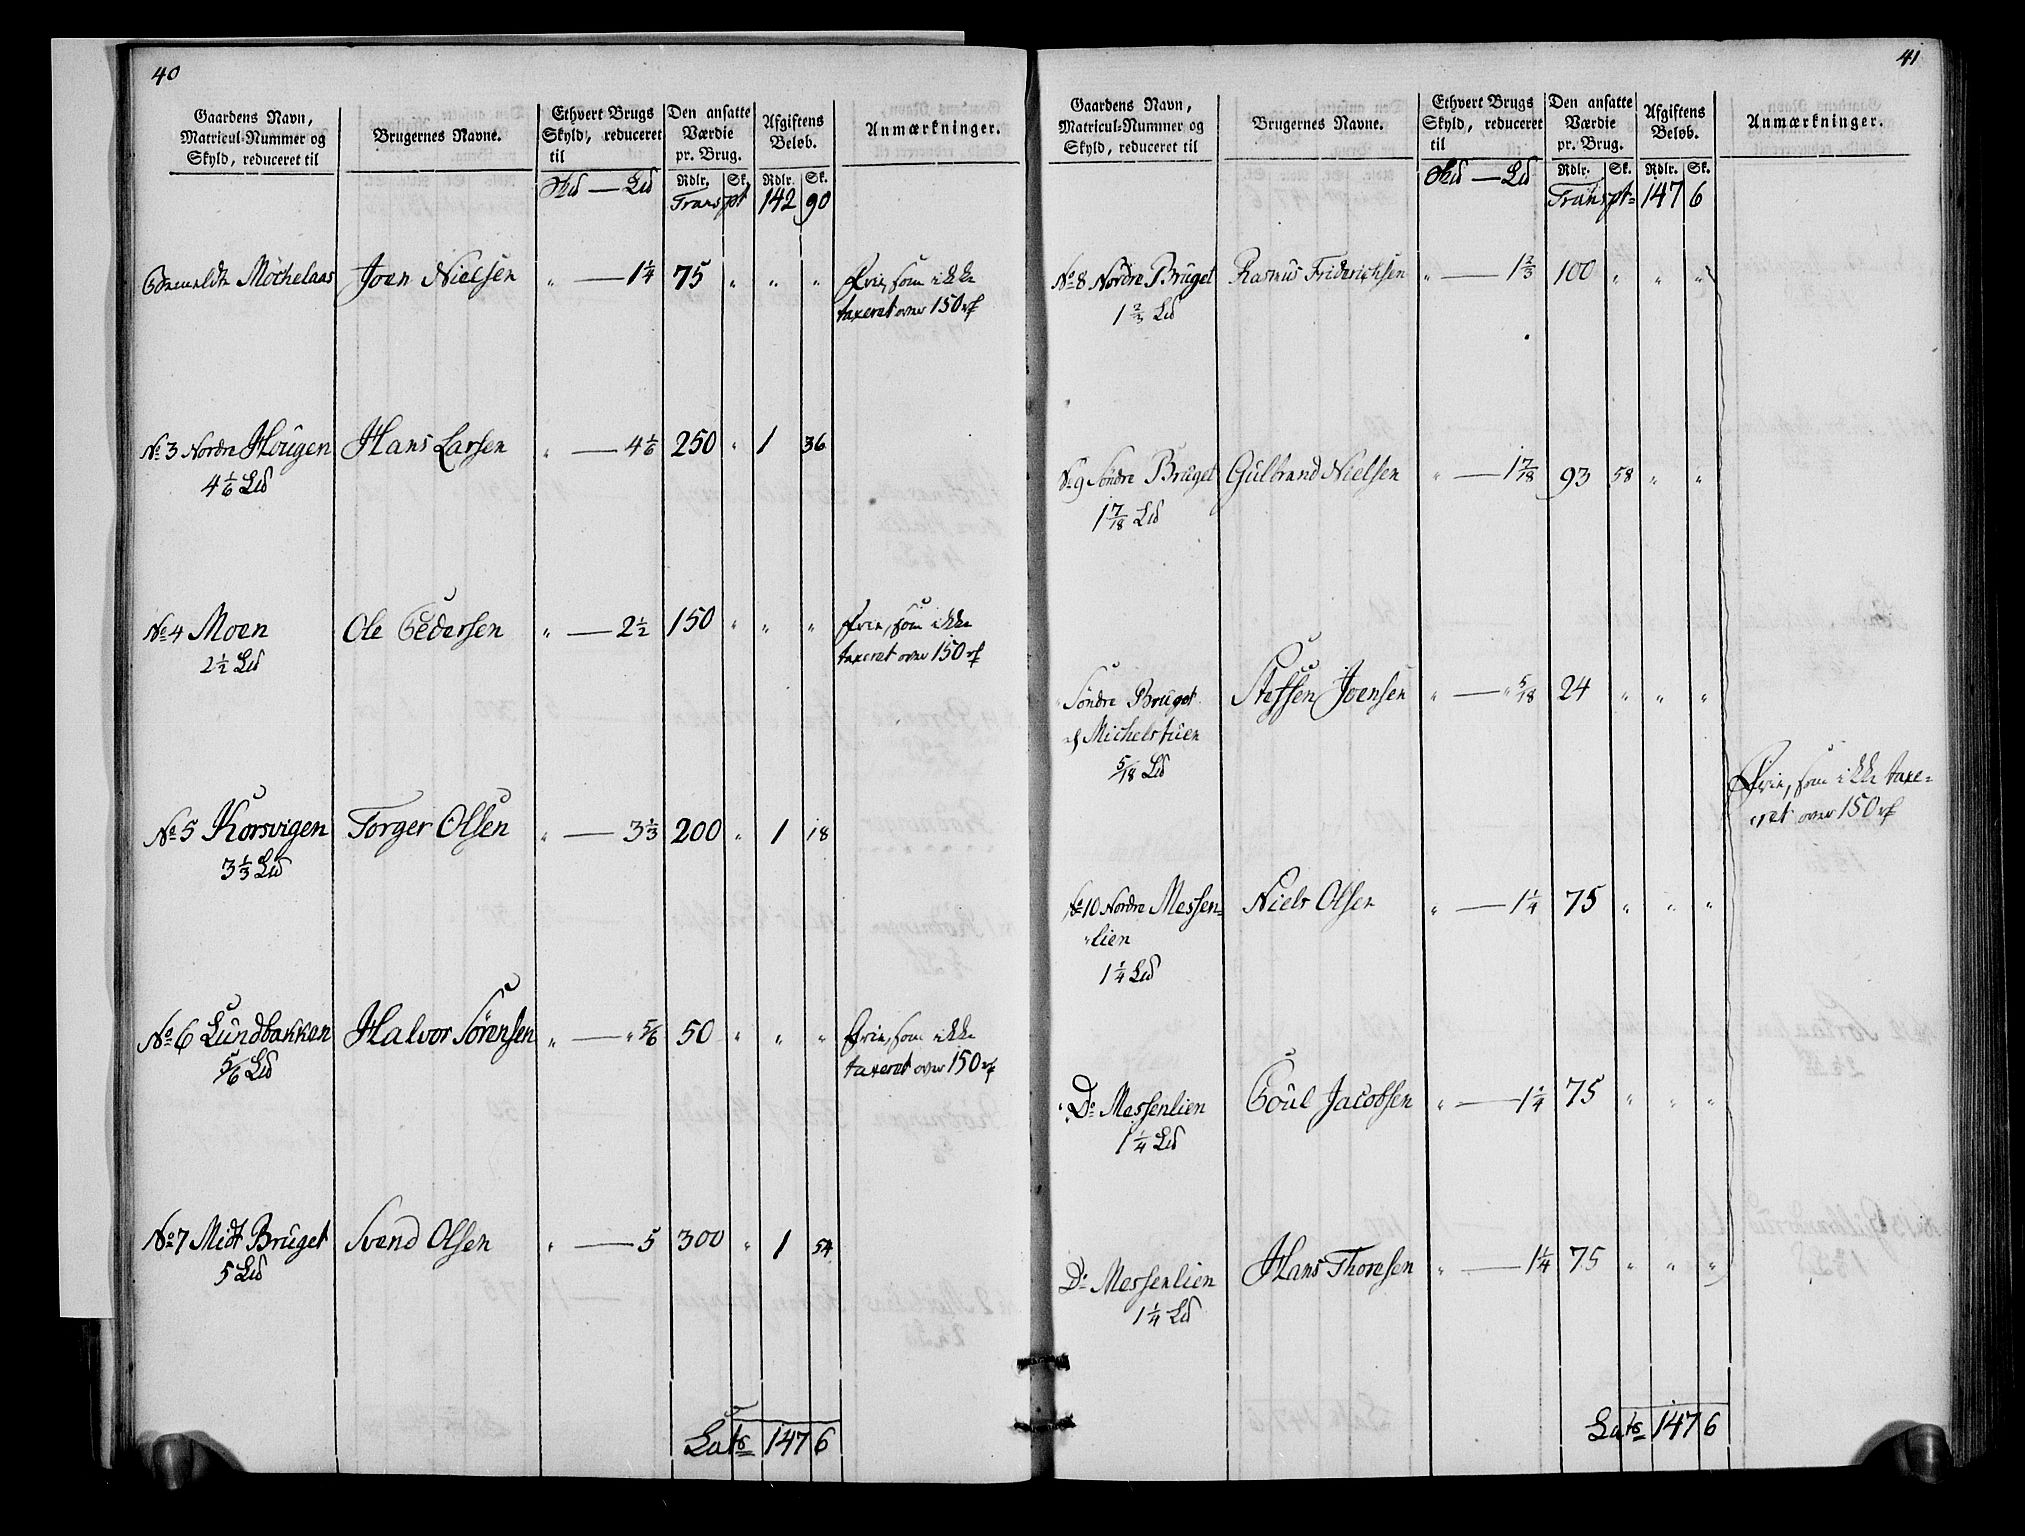 40
Gaardens Navn, Matricul-Nummer og Skyld, reduceret til | Brugernes Navne. | Ethvert Brugs Skyld, reduceret til | Den ansatte Værdie pr. Brug. | Afgiftens Beløb. | Anmærkninger.
Rdlr. Sk. Rdlr. Sk.
Transpt 142 90
Møchelaas Joen Nielsen " — 1 1/4 75 " " " Frie, som ikke
taxeret over 150 rd
No 3 Nordre Hougen Hans Larsen " — 4 1/6 250 " 1 36
4 1/6 Ld
No 4 Moen Ole Pedersen " — 2 1/2 150 " " " Frie, som ikke
2 1/2 Ld taxeret over 150 rd
No 5 Korsvigen Torger Olsen " — 3 1/3 200 " 1 18
3 1/3 Ld
No 6 Lundbakken Halvor Sörensen " — " 5/6 50 " " " Frie, som ikke
5/6 Ld taxeret over 150 rd
No 7 Midt Bruget Svend Olsen " — 5 300 " 1 54
5 Ld
Lats 147 6
41
Gaardens Navn, Matricul-Nummer og Skyld, reduceret til | Brugernes Navne. | Ethvert Brugs Skyld, reduceret til | Den ansatte Værdie pr. Brug. | Afgiftens Beløb. | Anmærkninger.
Rdlr. Sk. Rdlr. Sk.
Transpt 147 6
No 8 Nordre Bruget Rasmus Friderichsen " — 1 2/3 100 " " "
1 2/3 Ld
No 9 Söndre Bruget Gulbrand Nielsen " — 1 7/18 93 58 " "
1 7/18 Ld
Söndre Bruget Steffen Joensen " — " 5/18 24 " " "
Michelstuen
5/18 Ld
Frie, som ikke taxe-
ret over 150 rd
No 10 Nordre Messen- Niels Olsen " — 1 1/4 75 " " "
lien
1 1/4 Ld
Do Messenlien Poul Jacobsen " — 1 1/4 75 " " "
1 1/4 Ld
Do Messenlien Hans Thoresen " — 1 1/4 75 " " "
1 1/4 Ld
Lats 147 6